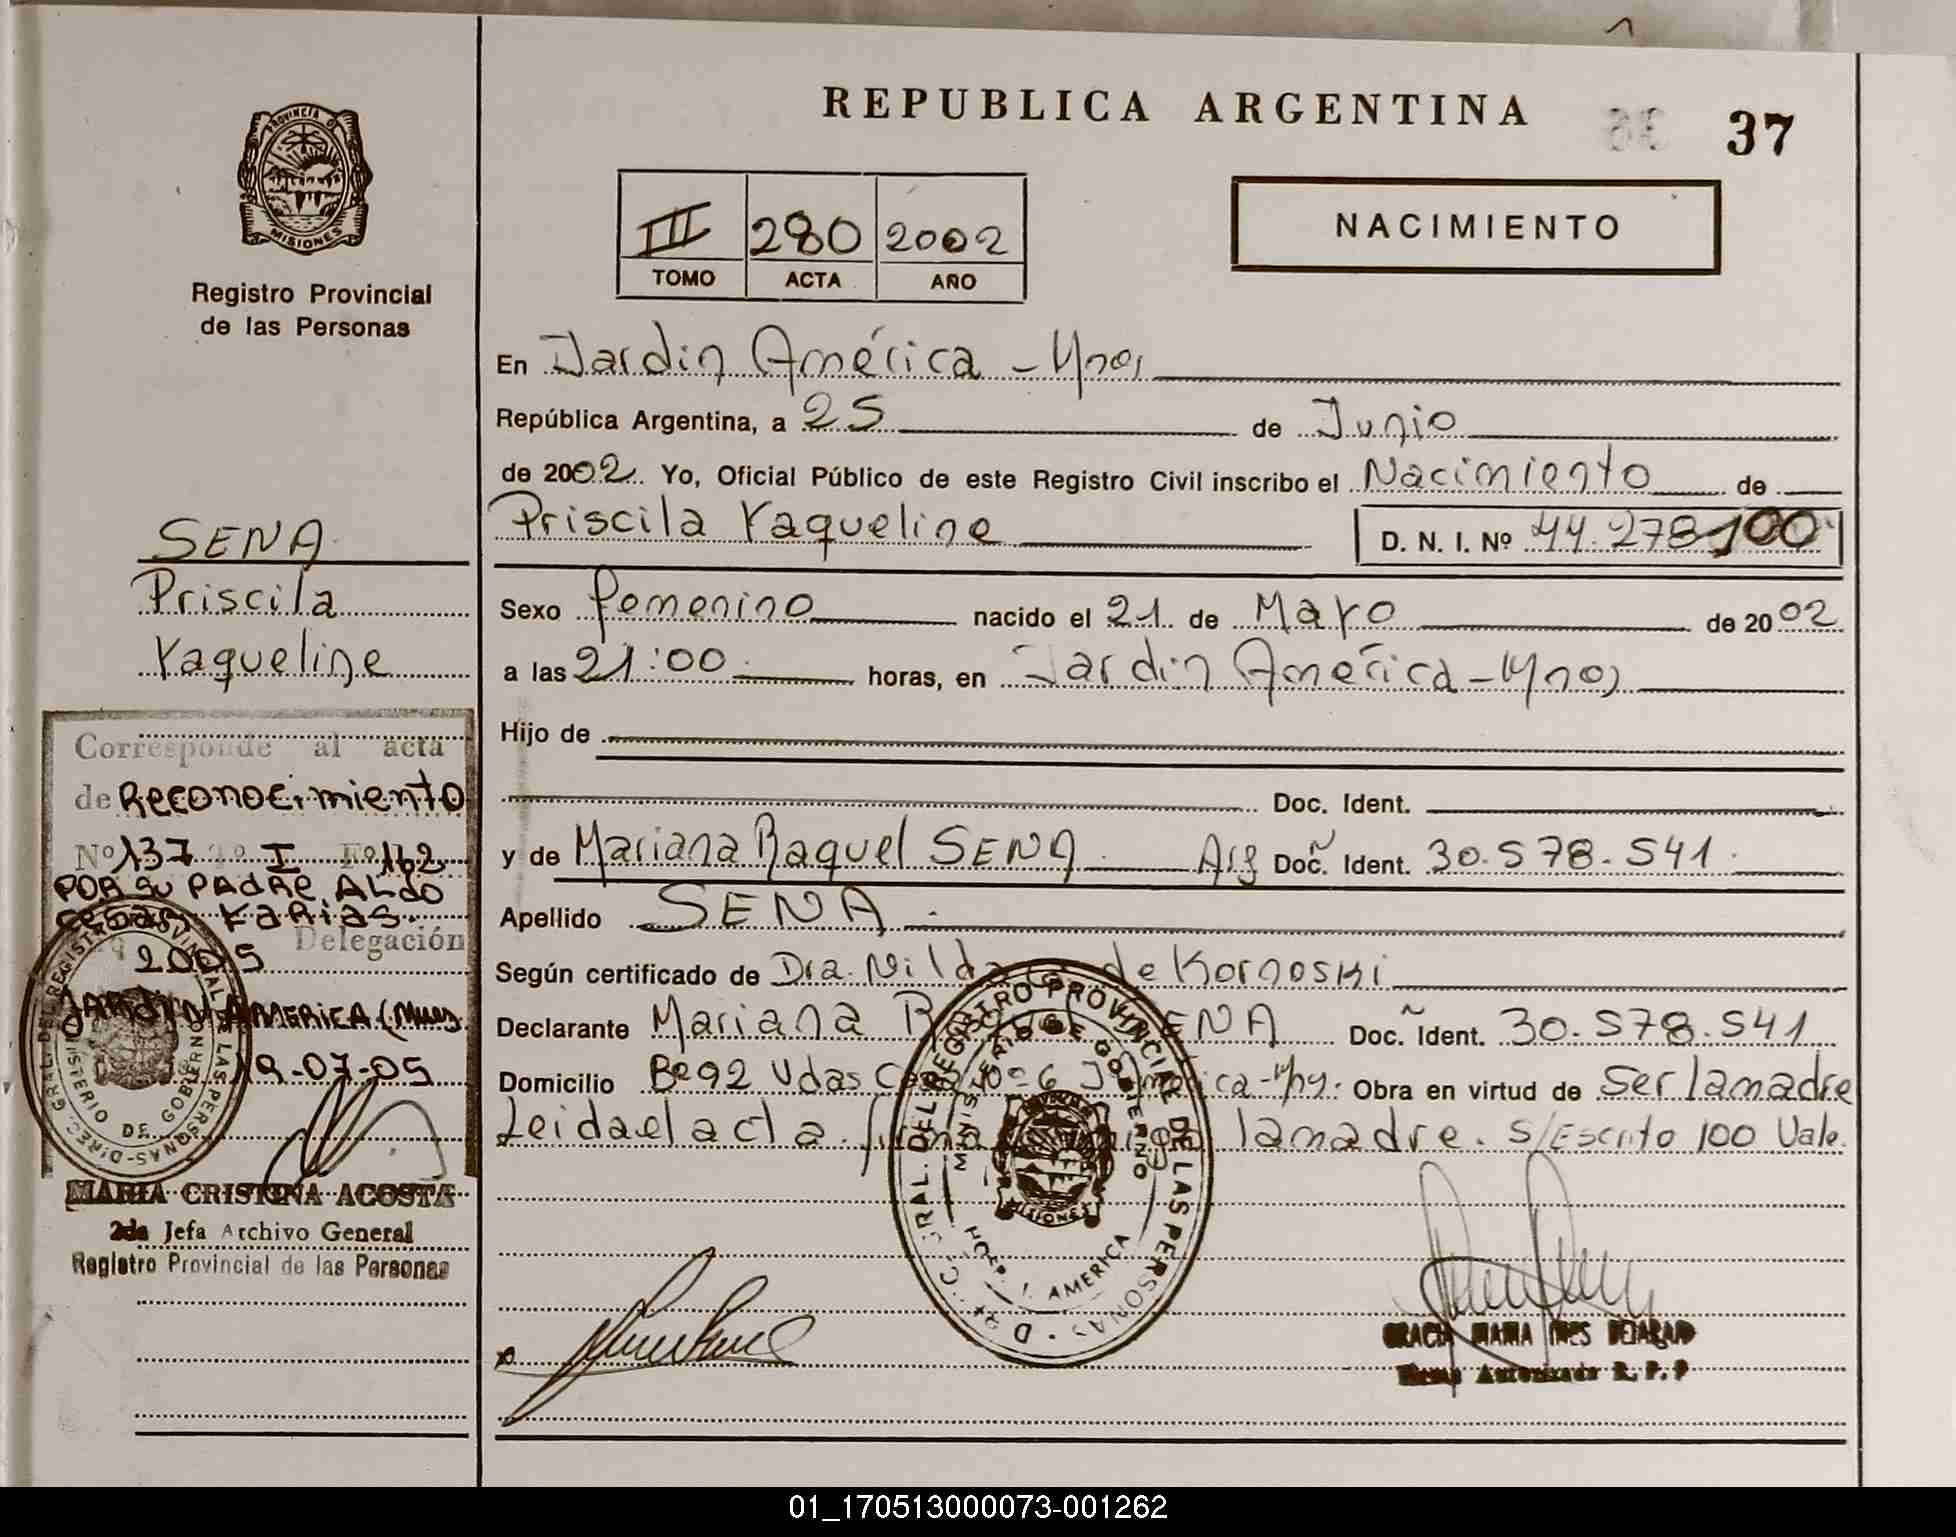 REPUBLICA ARGENTINA
36 37
PROVINCIA D
MISIONES
Registro Provincial
de las Personas
III 280 2002
TOMO ACTA AÑO
NACIMIENTO
En Jardin América - Mnes
República Argentina, a 25 de Junio
de 2002. Yo, Oficial Público de este Registro Civil inscribo el Nacimiento de
Priscila Yaqueline D. N. I. Nº 44.278100
Sexo femenino nacido el 21 de Mayo de 2002
a las 21:00 horas, en Jardin América - Mnes
Hijo de
Doc. Ident.
y de Mariana Raquel SENA Arg Doc. Ident. 30.578.541.
Apellido SENA.
Según certificado de Dra. Nilda de Kornoski
Declarante Mariana R ENA Doc. Ident. 30.578.541
Domicilio Bº92 Vdas Cas nº 6 Obra en virtud de Ser la madre
Leida el acta. la madre. S/Escrito 100 Vale.
DIREC. GRAL. DEL REGISTRO PROVINCIAL DE LAS PERSONAS
MINISTERIO DE GOBIERNO
MISIONES
AMERICA
GRACIA MARIA INES
Firma Autorizada R. P. P
SENA
Priscila
Yaqueline
Corresponde al acta
de Reconocimiento
Nº 137 Tº I Fº 162
POR su PADRE ALDO
CESAR KARIAS.
2005 Delegación
JARDIN AMERICA (Mnes
19-07-05
DIREC. GRAL. DEL REGISTRO PROVINCIAL DE LAS PERSONAS
MINISTERIO DE GOBIERNO
MARIA CRISTINA ACOSTA
2da Jefa Archivo General
Registro Provincial de las Personas
01_170513000073-001262